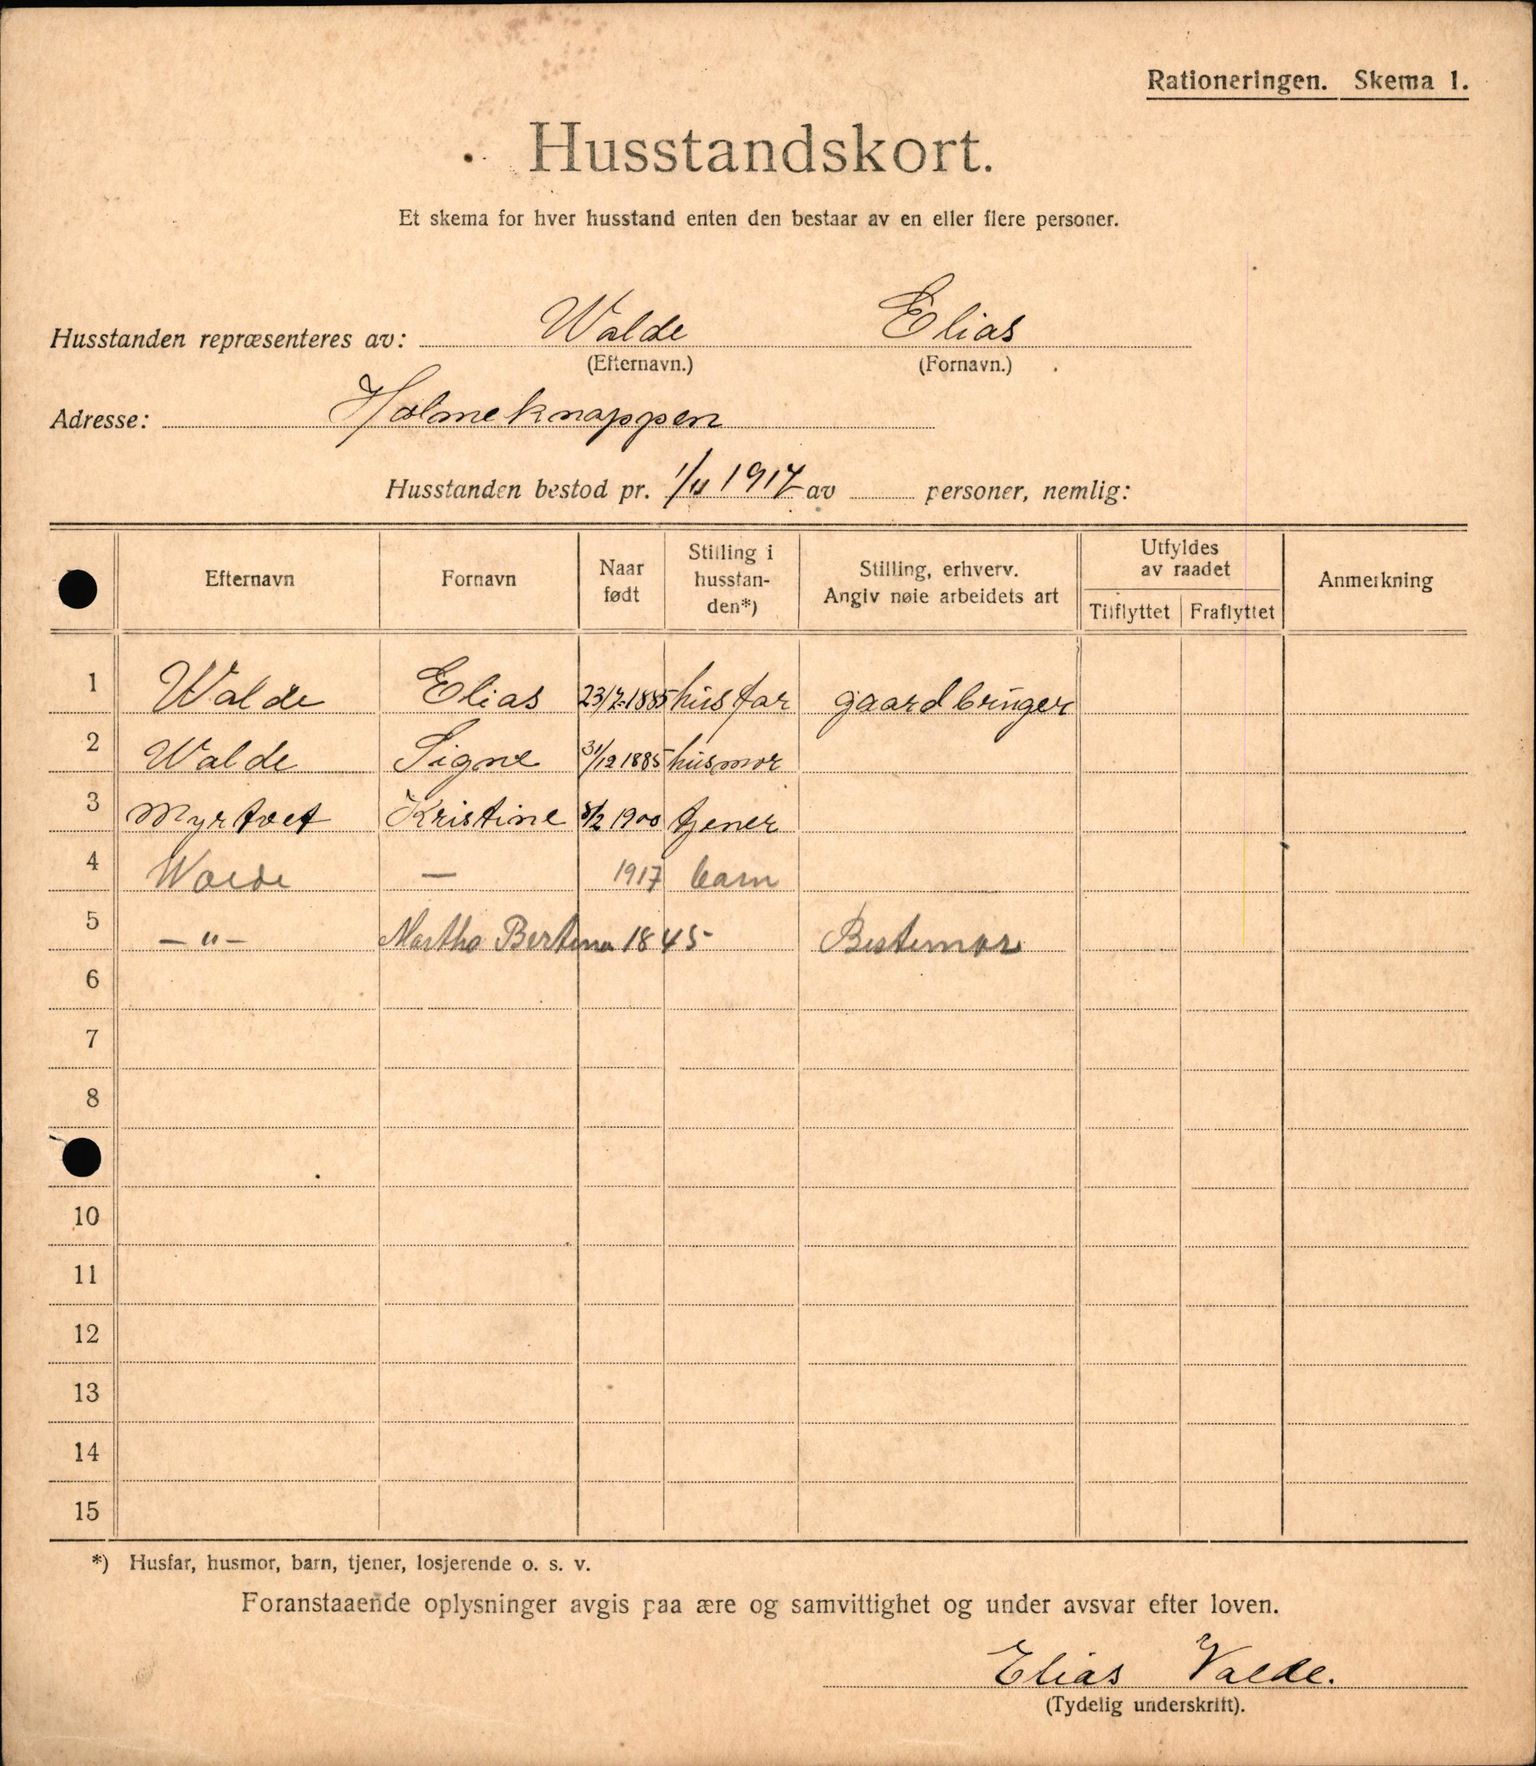 Rationeringen. Skema 1.
Husstandskort.
Et skema for hver husstand enten den bestaar av en eller flere personer.
Husstanden repræsenteres av: Walde Elias
(Efternavn.) (Fornavn.)
Adresse: Holmeknappen
Husstanden bestod pr. 1/11 1917 av personer, nemlig:
Efternavn Fornavn Naar født Stilling i husstan-den*) Stilling, erhverv. Angiv nøie arbeidets art Utfyldes av raadet Tilflyttet Fraflyttet Anmerkning
1 Walde Elias 23/7-1885 husfar gaardbruger
2 Walde Signe 31/12 1885 husmor
3 Myrtvet Kristine 8/2 1900 tjener
4 Walde — 1917 barn
5 —"— Martha Bertina 1845 Bestemor
6
7
8
10
11
12
13
14
15
*) Husfar, husmor, barn, tjener, losjerende o. s. v.
Foranstaaende oplysninger avgis paa ære og samvittighet og under avsvar efter loven.
Elias Valde.
(Tydelig underskrift).